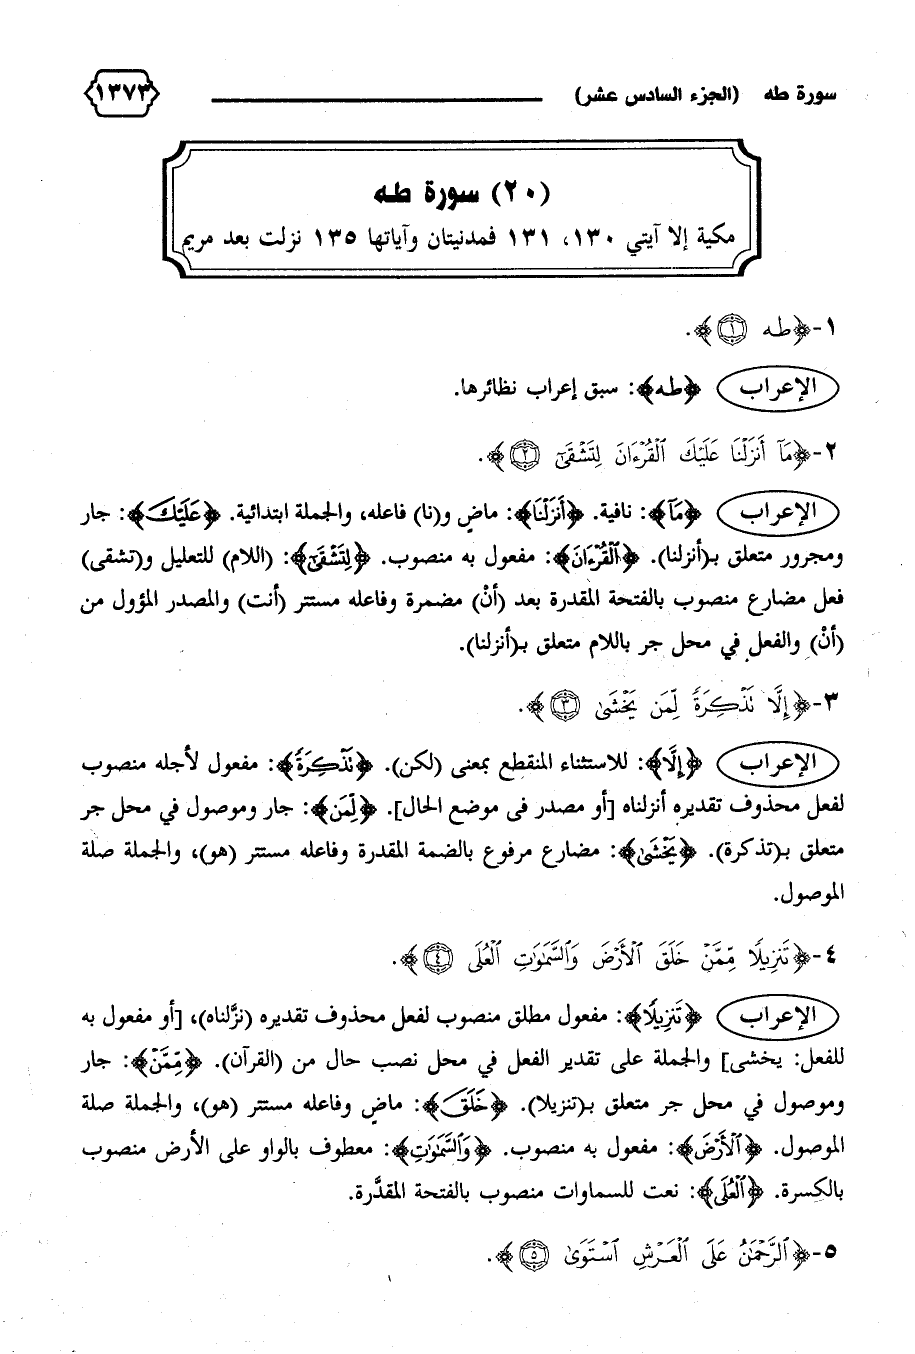 سورة طه (الجزء السادس عشر) ١٣٧٣
(٢٠) سورة طه
مكية إلا آيتي ١٣٠، ١٣١ فمدنيتان وآياتها ١٣٥ نزلت بعد مريم
١-﴿طه ١﴾.
الإعراب ﴿طه﴾: سبق إعراب نظائرها.
٢-﴿مَآ أَنزَلْنَا عَلَيْكَ ٱلْقُرْءَانَ لِتَشْقَىٰٓ ٢﴾.
الإعراب ﴿مَآ﴾: نافية. ﴿أَنزَلْنَا﴾: ماضٍ و(نا) فاعله، والجملة ابتدائية. ﴿عَلَيْكَ﴾: جار
ومجرور متعلق بـ(أنزلنا). ﴿ٱلْقُرْءَانَ﴾: مفعول به منصوب. ﴿لِتَشْقَىٰٓ﴾: (اللام) للتعليل و(تشقى)
فعل مضارع منصوب بالفتحة المقدرة بعد (أنْ) مضمرة وفاعله مستتر (أنت) والمصدر المؤول من
(أنْ) والفعل في محل جر باللام متعلق بـ(أنزلنا).
٣-﴿إِلَّا تَذْكِرَةً لِّمَن يَخْشَىٰ ٣﴾.
الإعراب ﴿إِلَّا﴾: للاستثناء المنقطع بمعنى (لكن). ﴿تَذْكِرَةً﴾: مفعول لأجله منصوب
لفعل محذوف تقديره أنزلناه [أو مصدر فى موضع الحال]. ﴿لِّمَن﴾: جار وموصول في محل جر
متعلق بـ(تذكرة). ﴿يَخْشَىٰ﴾: مضارع مرفوع بالضمة المقدرة وفاعله مستتر (هو)، والجملة صلة
الموصول.
٤-﴿تَنزِيلًا مِّمَّنْ خَلَقَ ٱلْأَرْضَ وَٱلسَّمَـٰوَٰتِ ٱلْعُلَى ٤﴾.
الإعراب ﴿تَنزِيلًا﴾: مفعول مطلق منصوب لفعل محذوف تقديره (نزَّلناه)، [أو مفعول به
للفعل: يخشى] والجملة على تقدير الفعل في محل نصب حال من (القرآن). ﴿مِّمَّنْ﴾: جار
وموصول في محل جر متعلق بـ(تنزيلا). ﴿خَلَقَ﴾: ماضٍ وفاعله مستتر (هو)، والجملة صلة
الموصول. ﴿ٱلْأَرْضَ﴾: مفعول به منصوب. ﴿وَٱلسَّمَـٰوَٰتِ﴾: معطوف بالواو على الأرض منصوب
بالكسرة. ﴿ٱلْعُلَى﴾: نعت للسماوات منصوب بالفتحة المقدَّرة.
٥-﴿ٱلرَّحْمَـٰنُ عَلَى ٱلْعَرْشِ ٱسْتَوَىٰ ٥﴾.